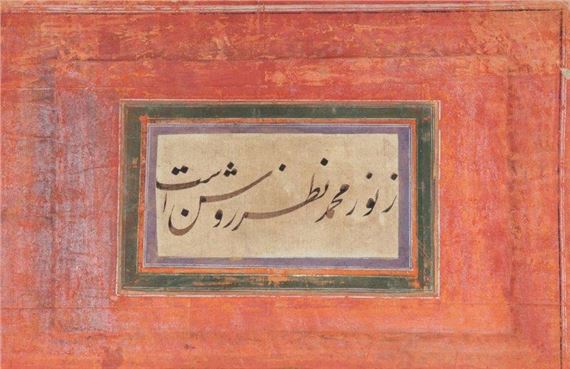 ز نور محمد نظر روشن است